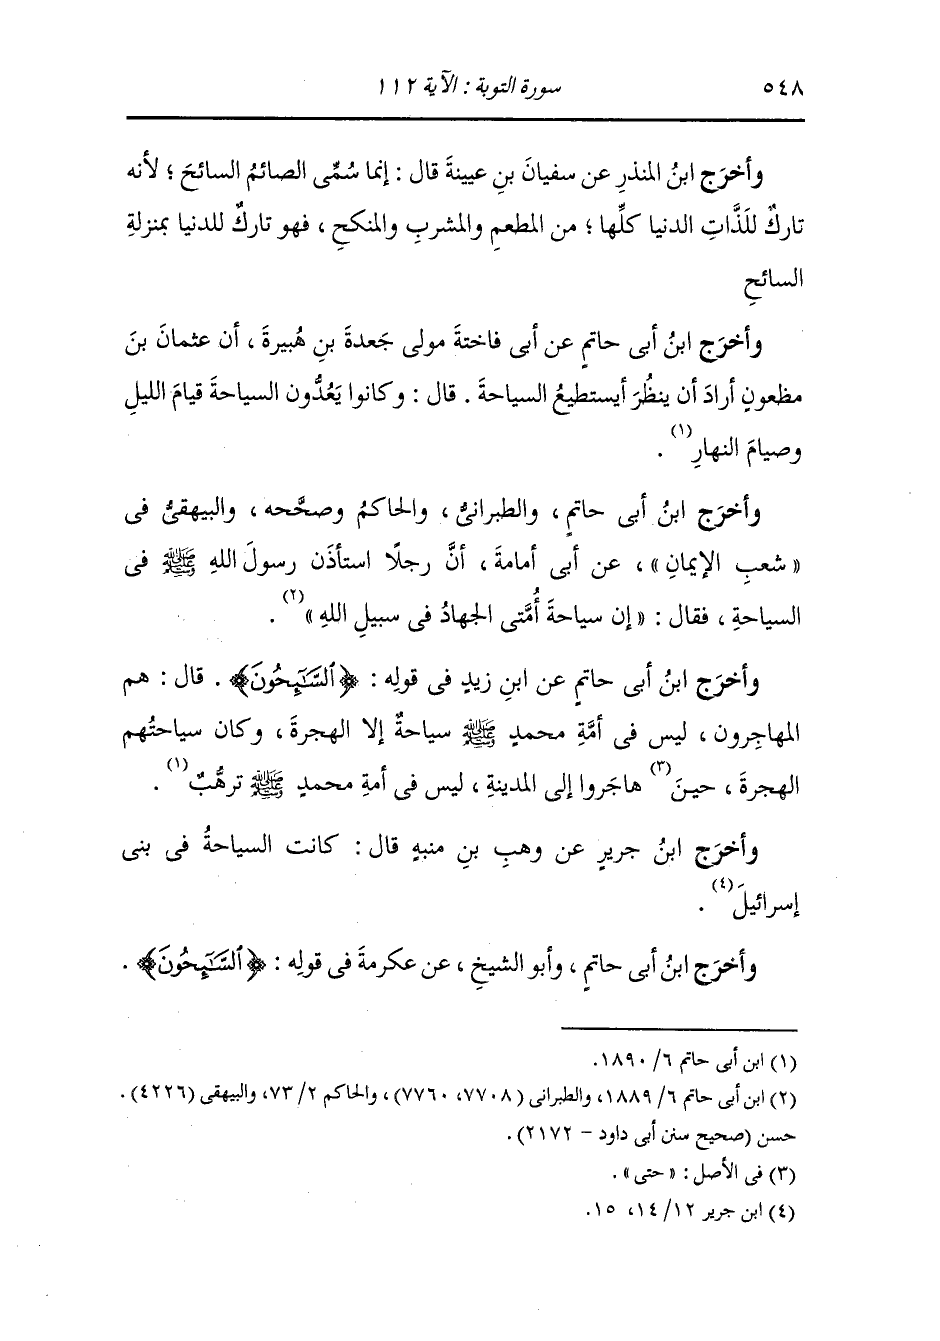 ٥٤٨ سورة التوبة : الآية ١١٢
وأخرَج ابنُ المنذرِ عن سفيانَ بنِ عيينةَ قال : إنما سُمِّى الصائمُ السائحَ ؛ لأنه
تاركٌ للَذَّاتِ الدنيا كلِّها ؛ من المطعمِ والمشربِ والمنكحِ ، فهو تاركٌ للدنيا بمنزلةِ
السائحِ
وأخرَج ابنُ أبى حاتمٍ عن أبى فاختةَ مولى جَعدةَ بنِ هُبيرةَ ، أن عثمانَ بنَ
مظعونٍ أرادَ أن ينظُرَ أيستطيعُ السياحةَ . قال : وكانوا يَعُدُّون السياحةَ قيامَ الليلِ
وصيامَ النهارِ(١) .
وأخرَج ابنُ أبى حاتمٍ ، والطبرانىُّ ، والحاكمُ وصحَّحه ، والبيهقىُّ فى
« شعبِ الإيمانِ » ، عن أبى أمامةَ ، أنَّ رجلًا استأذَن رسولَ اللهِ ﷺ فى
السياحةِ ، فقال : « إن سياحةَ أُمَّتى الجهادُ فى سبيلِ اللهِ »(٢) .
وأخرَج ابنُ أبى حاتمٍ عن ابنِ زيدٍ فى قولِه : ﴿ٱلسَّـٰٓئِحُونَ﴾ . قال : هم
المهاجِرون ، ليس فى أمَّةِ محمدٍ ﷺ سياحةٌ إلا الهجرةَ ، وكان سياحتُهم
الهجرةَ ، حينَ(٣) هاجَروا إلى المدينةِ ، ليس فى أمةِ محمدٍ ﷺ ترهُّبٌ(١) .
وأخرَج ابنُ جريرٍ عن وهبِ بنِ منبهٍ قال : كانت السياحةُ فى بنى
إسرائيلَ(٤) .
وأخرَج ابنُ أبى حاتمٍ ، وأبو الشيخِ ، عن عكرمةَ فى قولِه : ﴿ٱلسَّـٰٓئِحُونَ﴾ .
(١) ابن أبى حاتم ٦/ ١٨٩٠.
(٢) ابن أبى حاتم ٦/ ١٨٨٩، والطبرانى (٧٧٠٨، ٧٧٦٠)، والحاكم ٢/ ٧٣، والبيهقى (٤٢٢٦).
حسن (صحيح سنن أبى داود - ٢١٧٢).
(٣) فى الأصل : « حتى » .
(٤) ابن جرير ١٢/ ١٤، ١٥.